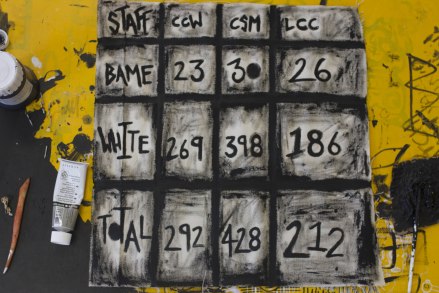 STAFF CCW CSM LCC
BAME 23 30 26
WHITE 269 398 186
TOTAL 292 428 212